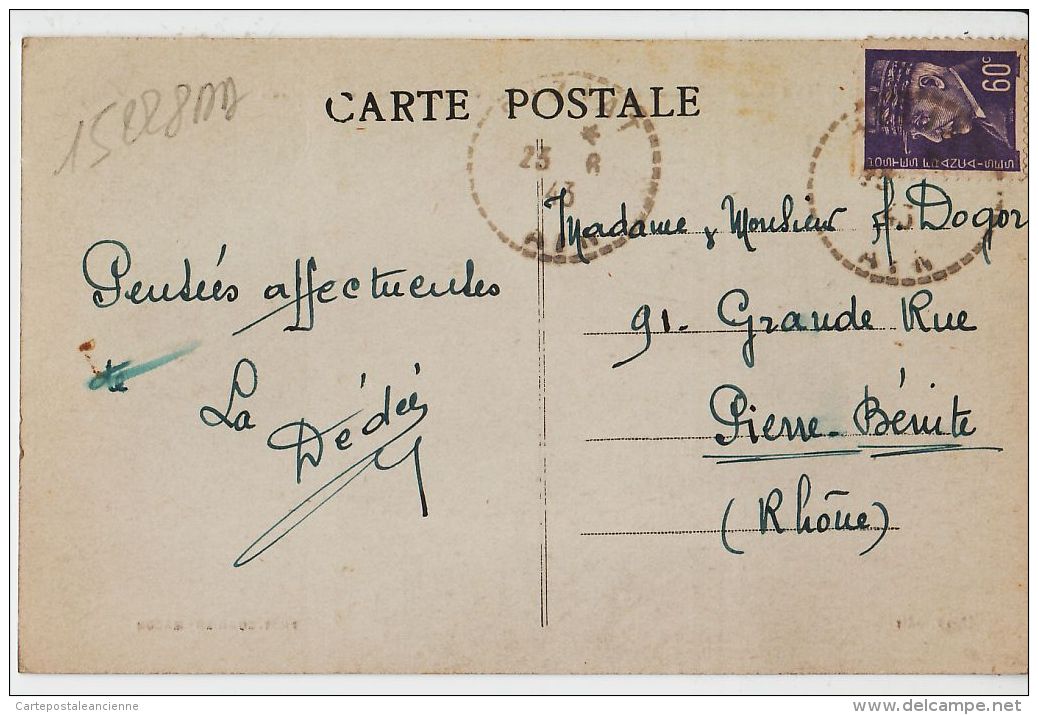 CARTE POSTALE
60c
POSTES FRANÇAISES
23
8
43
AIN
AIN
Pensées affectueuses
de
La
Dédée
Madame & Monsieur A. Dogor
91. Grande Rue
Pierre-Bénite
(Rhône)
Cartepostaleancienne
www.delcampe.net